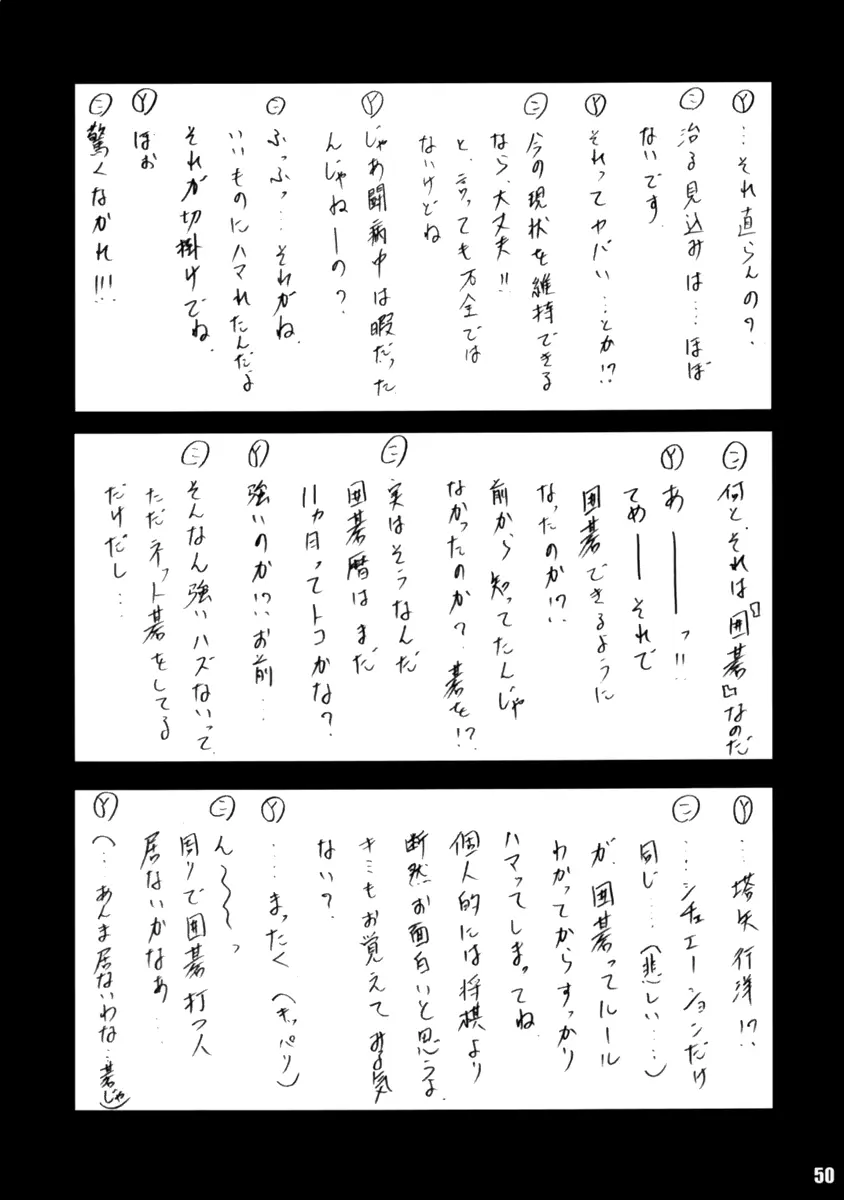 Ⓨ …それ直らんの?
㊁ 治る見込みは…ほぼ
ないです。
Ⓨ それってヤバい…とか!?
㊁ 今の現状を維持できる
なら、大丈夫!!
と、言っても万全では
ないけどね
Ⓨ じゃあ闘病中は暇だった
んじゃねーの?
㊁ ふっふっ…それがね、
いいものにハマれたんだよ
それが切掛けでね。
Ⓨ ほぉ
㊁ 驚くなかれ!!!
㊁ 何と、それは『囲碁』なのだ
Ⓨ あーーーっ!!
てめーーそれで
囲碁できるように
なったのか!?
前から知ってたんじゃ
なかったのか?碁を!?
㊁ 実はそうなんだ
囲碁暦はまだ
11ヵ月ってトコかな?
Ⓨ 強いのか!?お前…
㊁ そんなん強いハズないって
ただネット碁をしてる
だけだし…
Ⓨ …塔矢行洋!?
㊁ ……シチュエーションだけ
同じ……(悲しい……)
が、囲碁ってルール
わかってからすっかり
ハマってしまってね。
個人的には将棋より
断然お面白いと思うよ。
キミもお覚えてみる気
ない?
Ⓨ ……まったく(キッパリ)
㊁ ん〜〜〜っ
周りで囲碁打つ人
居ないかなあ…
Ⓨ (…あんま居ないわな…碁じゃ)
50